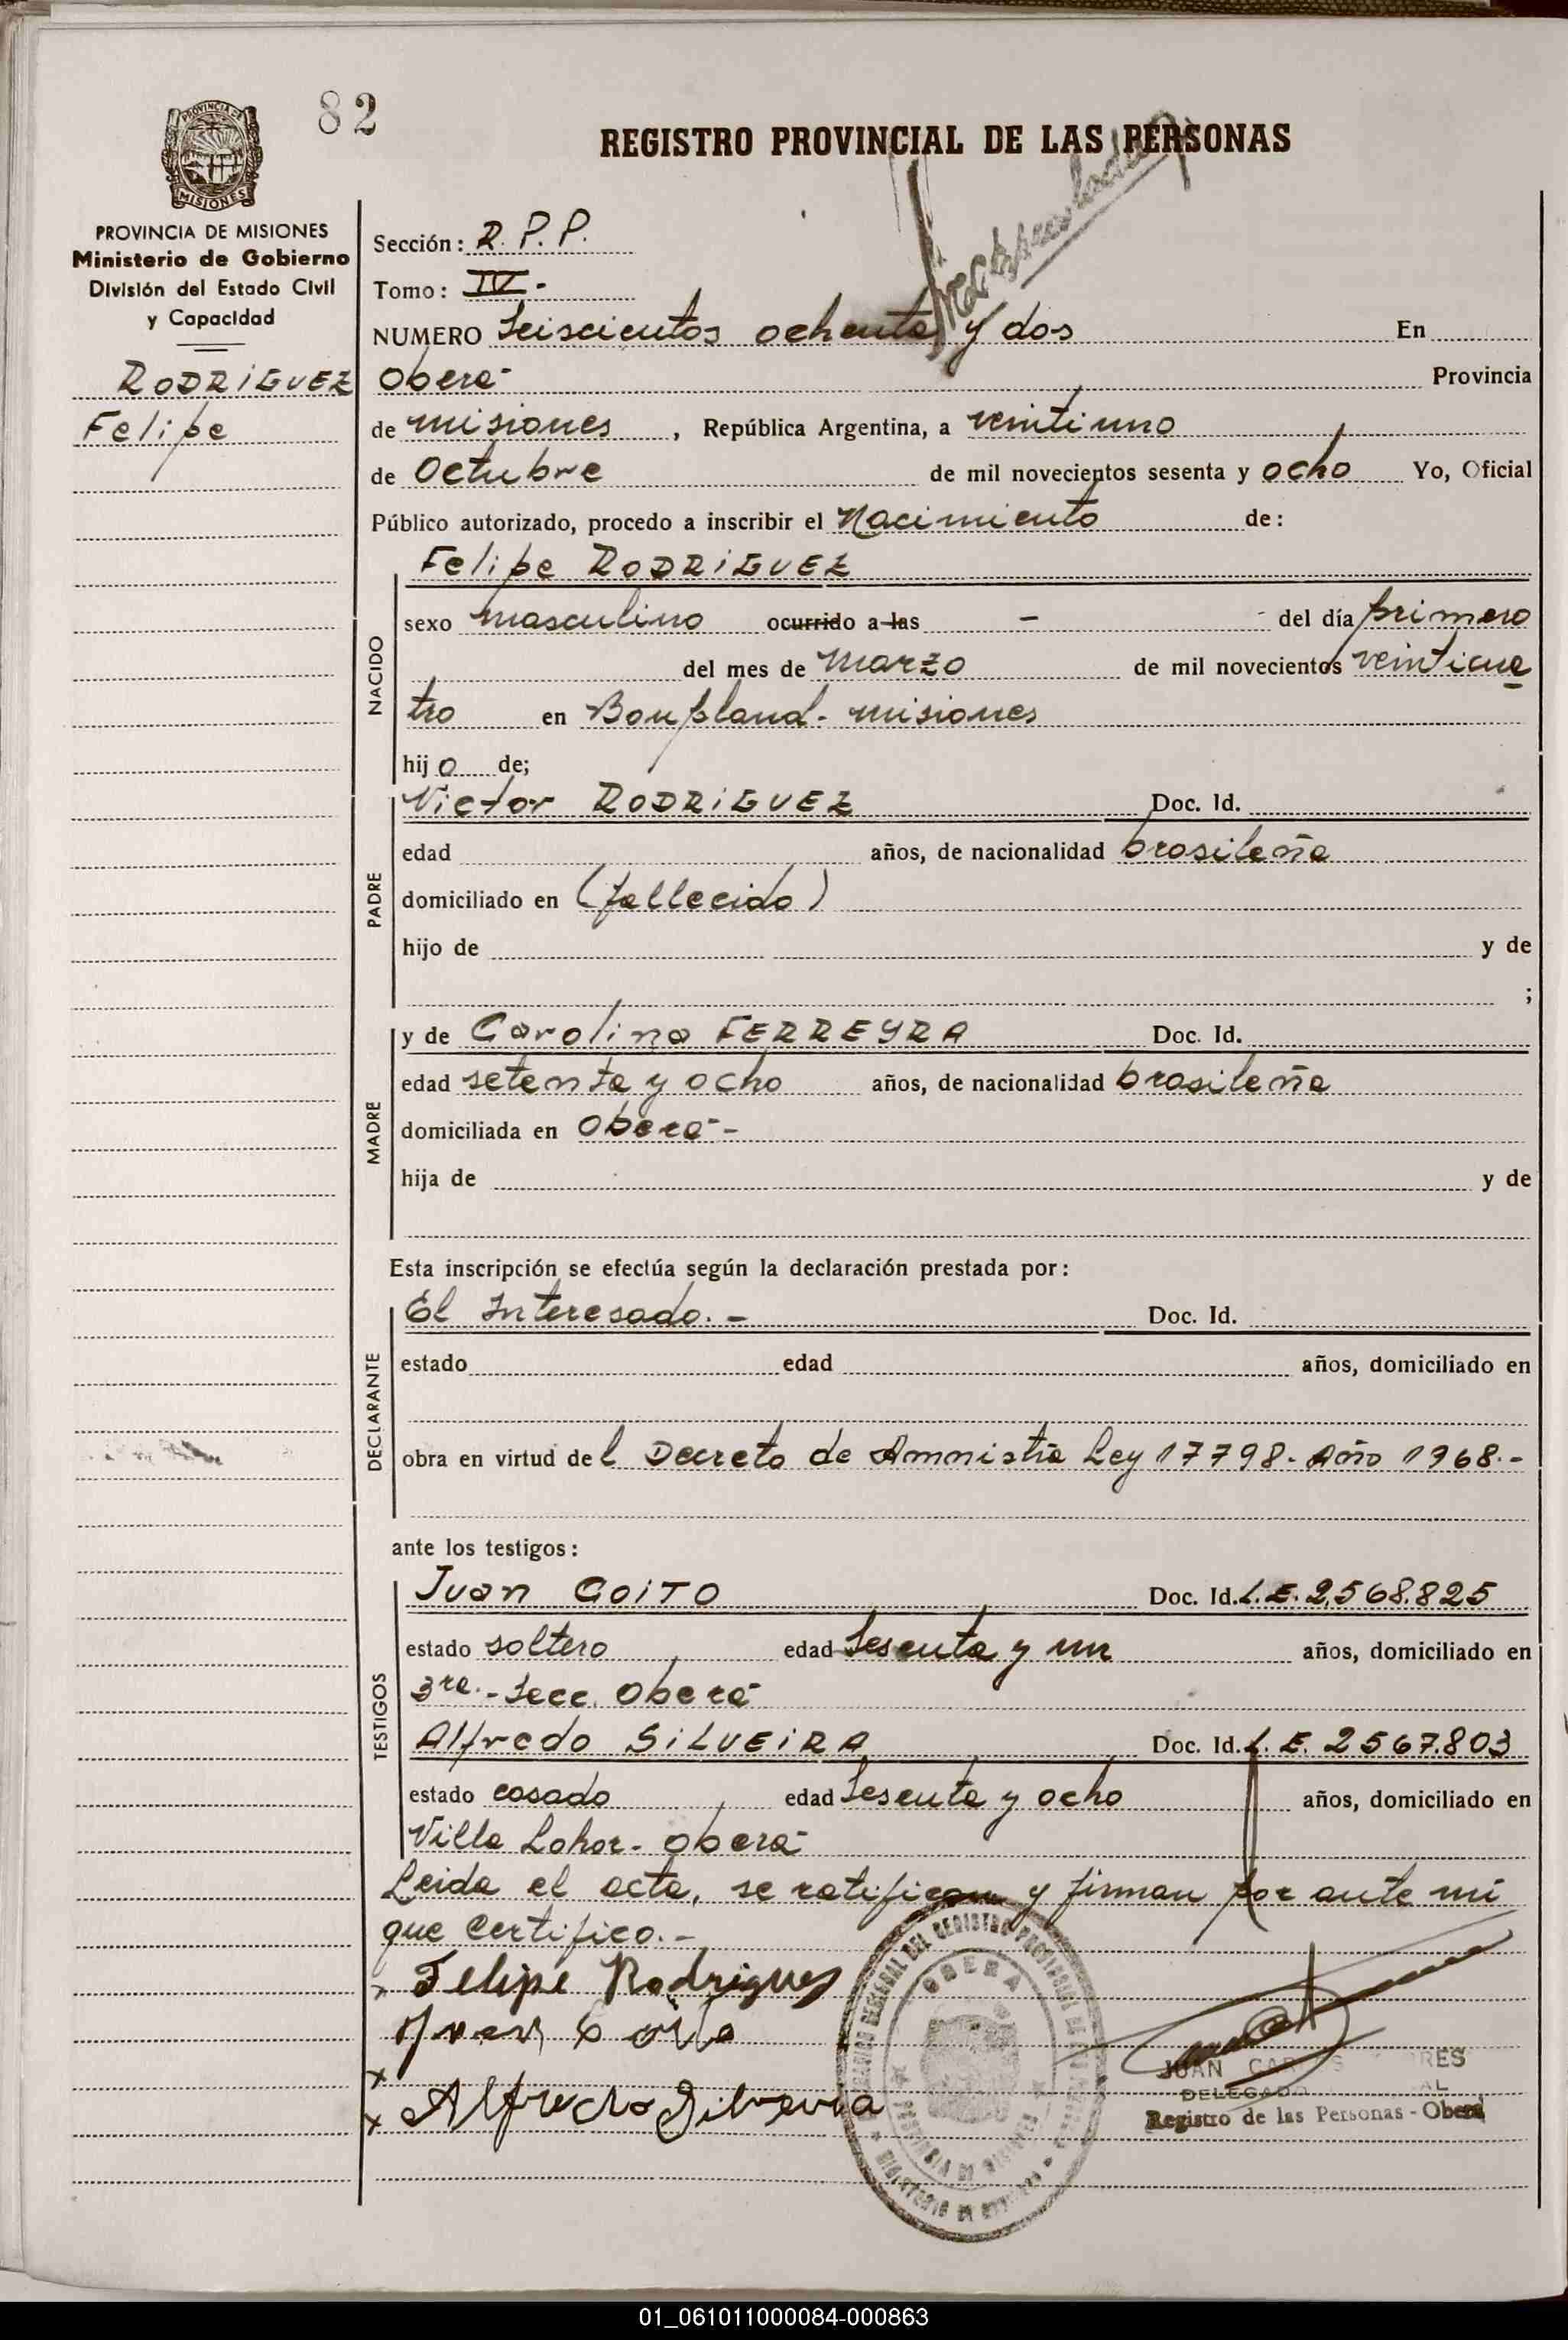 82
REGISTRO PROVINCIAL DE LAS PERSONAS
PROVINCIA DE
MISIONES
PROVINCIA DE MISIONES
Ministerio de Gobierno
División del Estado Civil
y Capacidad
RODRIGUEZ
Felipe
Sección: R. P. P.
Tomo: IV.-
NUMERO Seiscientos ochenta y dos En
Oberá- Provincia
de misiones, República Argentina, a veintiuno
de Octubre de mil novecientos sesenta y ocho Yo, Oficial
Público autorizado, procedo a inscribir el Nacimiento de:
Felipe RODRIGUEZ
NACIDO
sexo masculino ocurrido a las - del día primero
del mes de Marzo de mil novecientos veinticua
tro en Bonpland - misiones
hijo de;
PADRE
Victor RODRIGUEZ Doc. Id.
edad años, de nacionalidad brasileña
domiciliado en (fallecido)
hijo de y de
;
MADRE
y de Carolina FERREYRA Doc. Id.
edad setenta y ocho años, de nacionalidad brasileña
domiciliada en Oberá-
hija de y de
Esta inscripción se efectúa según la declaración prestada por:
DECLARANTE
El Interesado.- Doc. Id.
estado edad años, domiciliado en
obra en virtud del Decreto de Amnistía Ley 17798- Año 1968.-
ante los testigos:
TESTIGOS
Juan COITO Doc. Id. L.E. 2,568.825
estado soltero edad Sesenta y un años, domiciliado en
3ra.- Secc. Oberá
Alfredo SILVEIRA Doc. Id. L.E. 2567.803
estado casado edad Sesenta y ocho años, domiciliado en
Villa Lohor- Oberá
Leida el acta, se ratifican y firman por ante mi
que certifico.-
Felipe Rodrigues
Juan Coito
Alfredo Silveira
OBERA
JUAN
DELEGADO
Registro de las Personas - Oberá
01_061011000084-000863